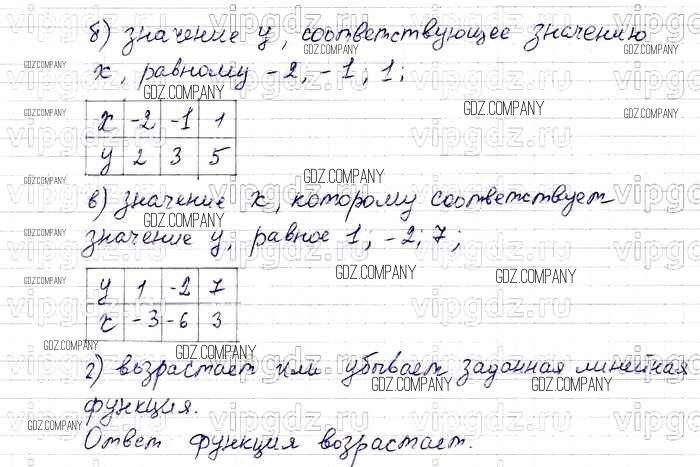 б) значение y, соответствующее значению
x, равному -2; -1; 1;
x -2 -1 1
y 2 3 5
в) значение x, которому соответствует
значение y, равное 1; -2; 7;
y 1 -2 7
x -3 -6 3
г) возрастает или убывает заданная линейная
функция.
Ответ функция возрастает.